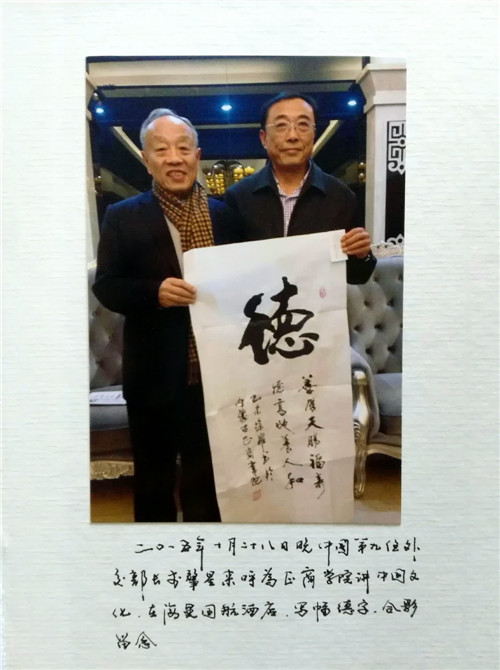 德
天賜福壽
德高 人和
乙未
二〇一五年十月二十八日晚中国第九任外
交部长李肇星来呼为正商学院讲中国文
化.在海亮国航酒店.写幅德字.合影
留念